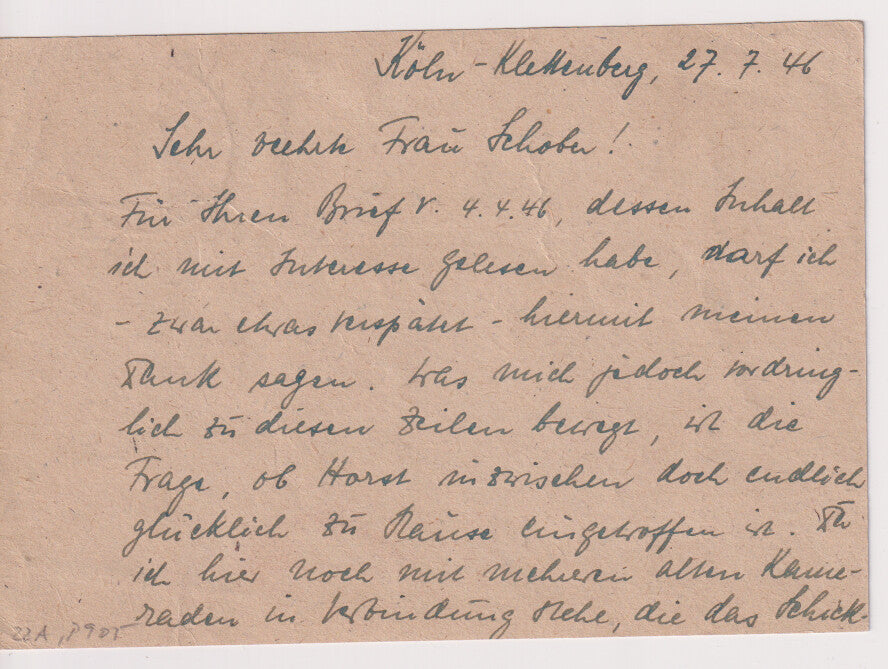 Köln-Klettenberg, 27. 7. 46
Sehr verehrte Frau Schober!
Für Ihren Brief v. 4.4.46, dessen Inhalt
ich mit Interesse gelesen habe, darf ich
- zwar etwas verspätet - hiermit meinen
Dank sagen. Was mich jedoch vordring-
lich zu diesen Zeilen bewegt, ist die
Frage, ob Horst inzwischen doch endlich
glücklich zu Hause eingetroffen ist. Da
ich hier noch mit mehreren alten Kame-
raden in Verbindung stehe, die das Schick-
22A, P905